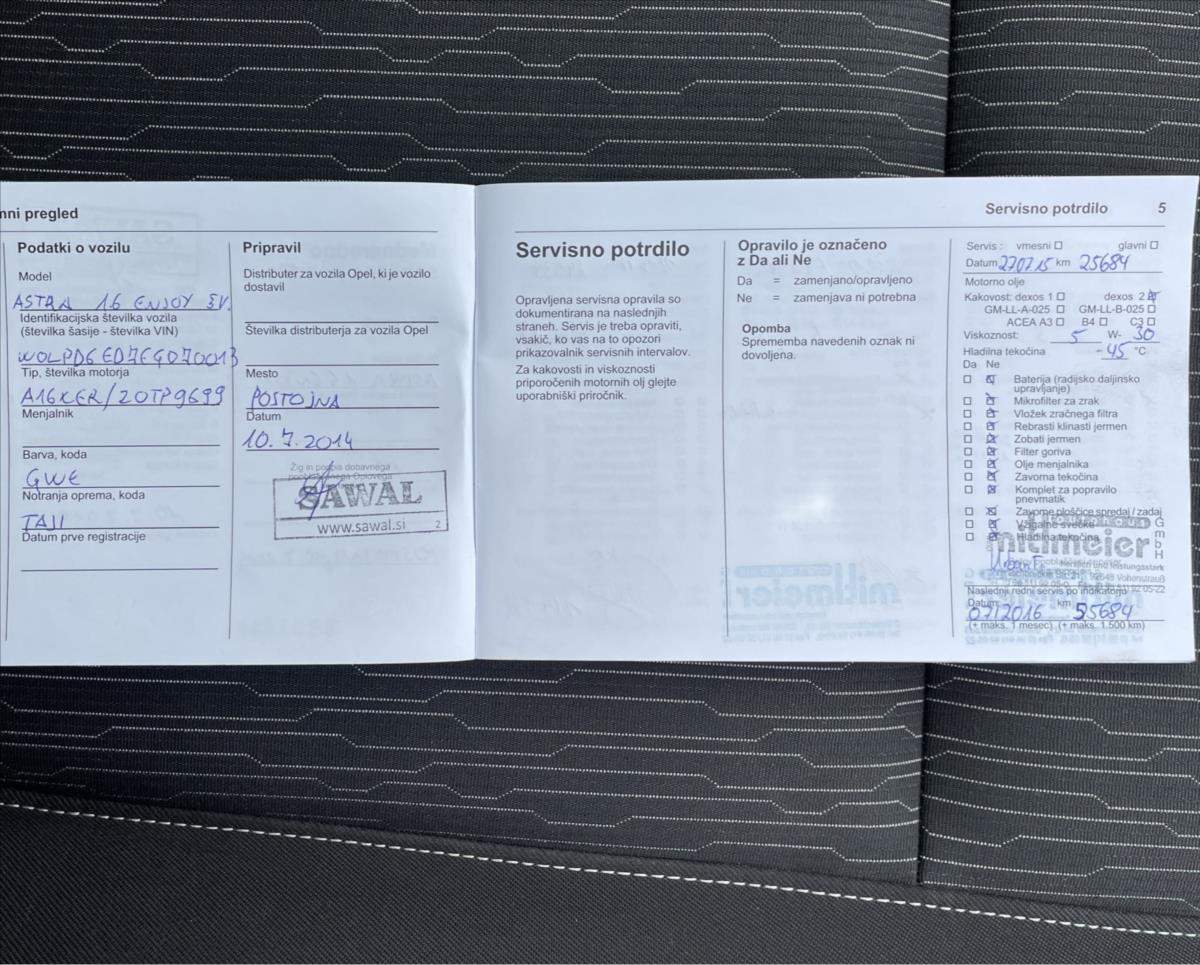 nni pregled
Podatki o vozilu
Model
ASTRA 1.6 ENJOY 5V.
Identifikacijska številka vozila
(številka šasije - številka VIN)
W0LPD6ED7EG070013
Tip, številka motorja
A16XER/20TP9699
Menjalnik
Barva, koda
GWE
Notranja oprema, koda
TAJI
Datum prve registracije
Pripravil
Distributer za vozila Opel, ki je vozilo
dostavil
Številka distributerja za vozila Opel
Mesto
POSTOJNA
Datum
10. 7. 2014
Žig in podpis dobavnega
SAWAL
www.sawal.si 2
Servisno potrdilo 5
Servisno potrdilo
Opravljena servisna opravila so
dokumentirana na naslednjih
straneh. Servis je treba opraviti,
vsakič, ko vas na to opozori
prikazovalnik servisnih intervalov.
Za kakovosti in viskoznosti
priporočenih motornih olj glejte
uporabniški priročnik.
Opravilo je označeno
z Da ali Ne
Da = zamenjano/opravljeno
Ne = zamenjava ni potrebna
Opomba
Sprememba navedenih oznak ni
dovoljena.
Servis : vmesni glavni
Datum 270715 km 25684
Motorno olje
Kakovost: dexos 1 dexos 2
GM-LL-A-025 GM-LL-B-025
ACEA A3 B4 C3
Viskoznost: 5 W- 30
Hladilna tekočina -45 °C
Da Ne
Baterija (radijsko daljinsko
upravljanje)
Mikrofilter za zrak
Vložek zračnega filtra
Rebrasti klinasti jermen
Zobati jermen
Filter goriva
Olje menjalnika
Zavorna tekočina
Komplet za popravilo
pnevmatik
Zavorne ploščice spredaj / zadaj
Vžigalne svečke
Hladilna tekočina
mitlmeier GmbH
herzlich und leistungsstark
92648 Vohenstrauß
Naslednji redni servis po indikatorju
Datum 07/2016 km 55684
(+ maks. 1 mesec) (+ maks. 1.500 km)